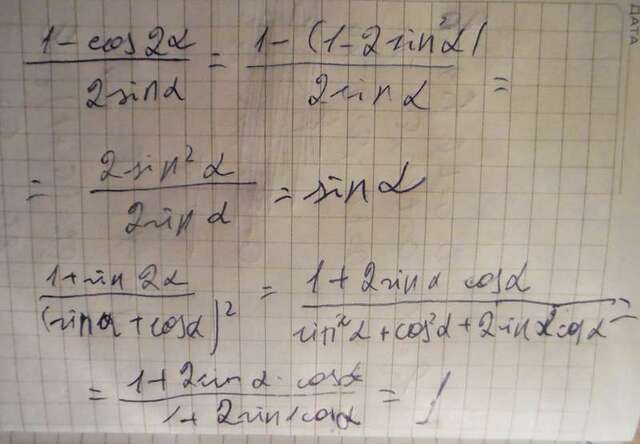 ДАТА
(1-cos2α)/(2sinα) = (1-(1-2sin²α))/(2sinα) =
= (2sin²α)/(2sinα) = sinα
(1+sin2α)/(sinα+cosα)² = (1+2sinα cosα)/(sin²α+cos²α+2sinα cosα) =
= (1+2sinα·cosα)/(1+2sinαcosα) = 1